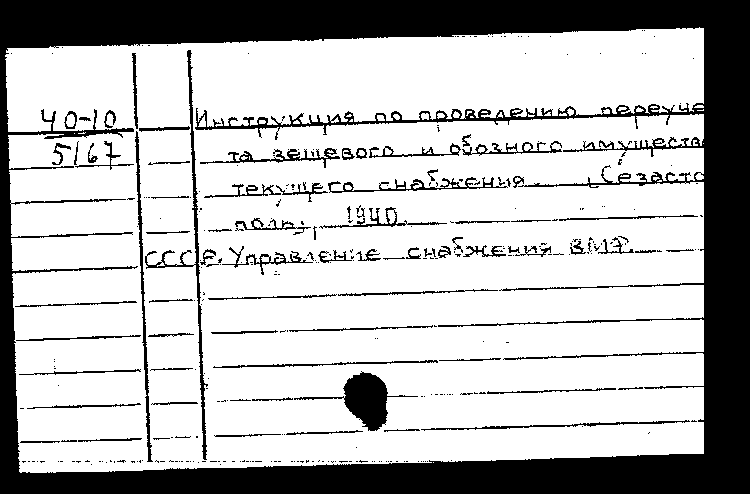 40-10
5167
Инструкция по проведению переуче
та вещевого и обозного имуществ
текущего снабжения. [Севасто
поль], 1940.
СССР. Управление снабжения ВМФ.